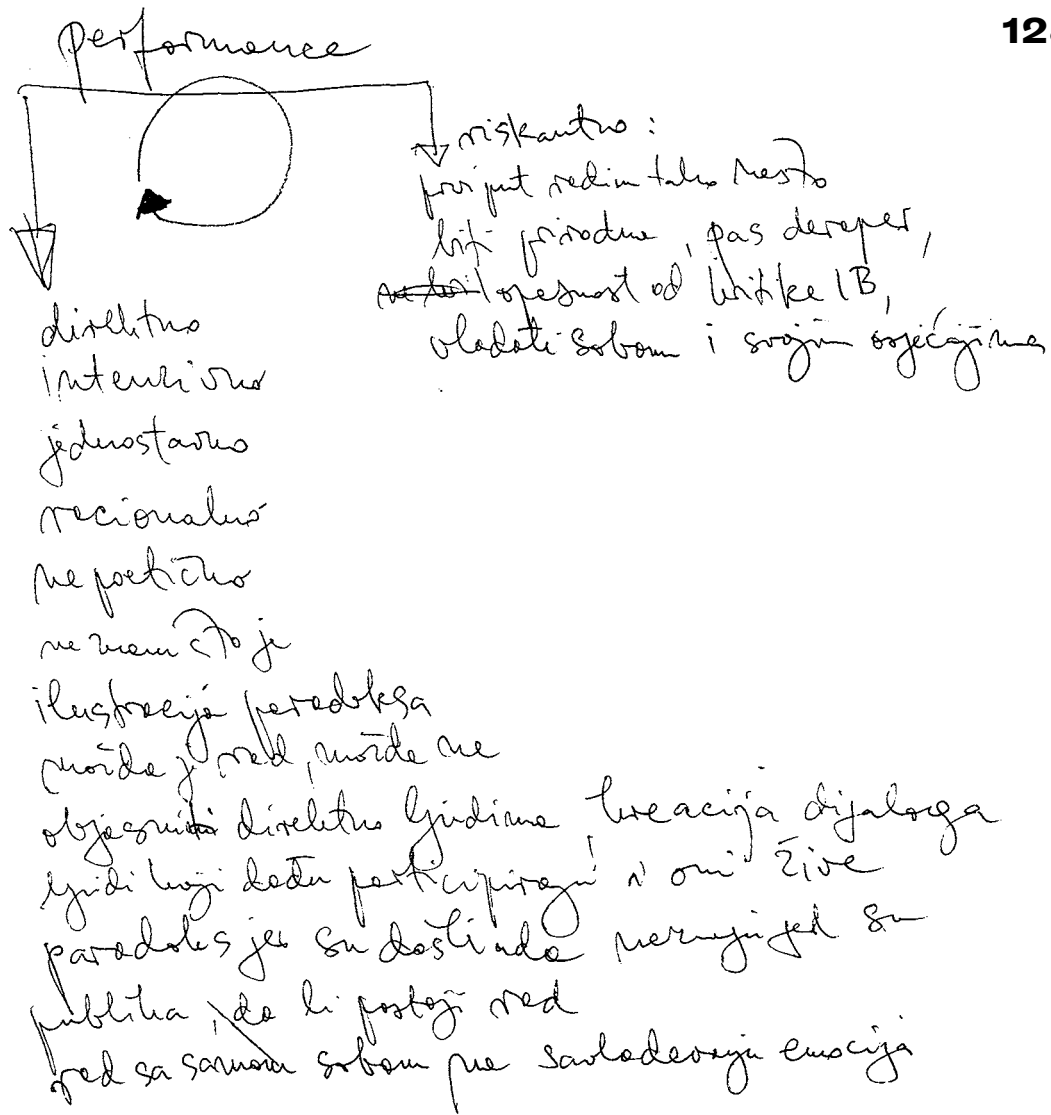 12.
performance
riskantno:
prvi put radim tako nešto
biti prirodna, pas deraper,
opasnost od kritike IB,
vladati sobom i svojim osjećajima
direktno
intenzivno
jednostavno
racionalno
nepoetično
ne znam što je
ilustracija paradoksa
možda je rad, možda ne
objasniti direktno ljudima, kreacija dijaloga
ljudi koji dođu participiraju i oni žive
paradoks jer su došli a ne znaju jel su
publika, da li postoji rad
rad sa samom sobom na savladavanju emocija